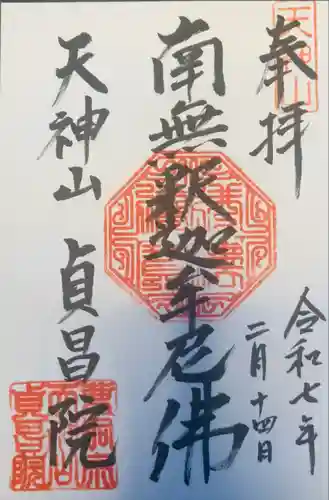 天神山
奉拝
令和七年
二月十四日
南無釈迦牟尼佛
天神山
貞昌院